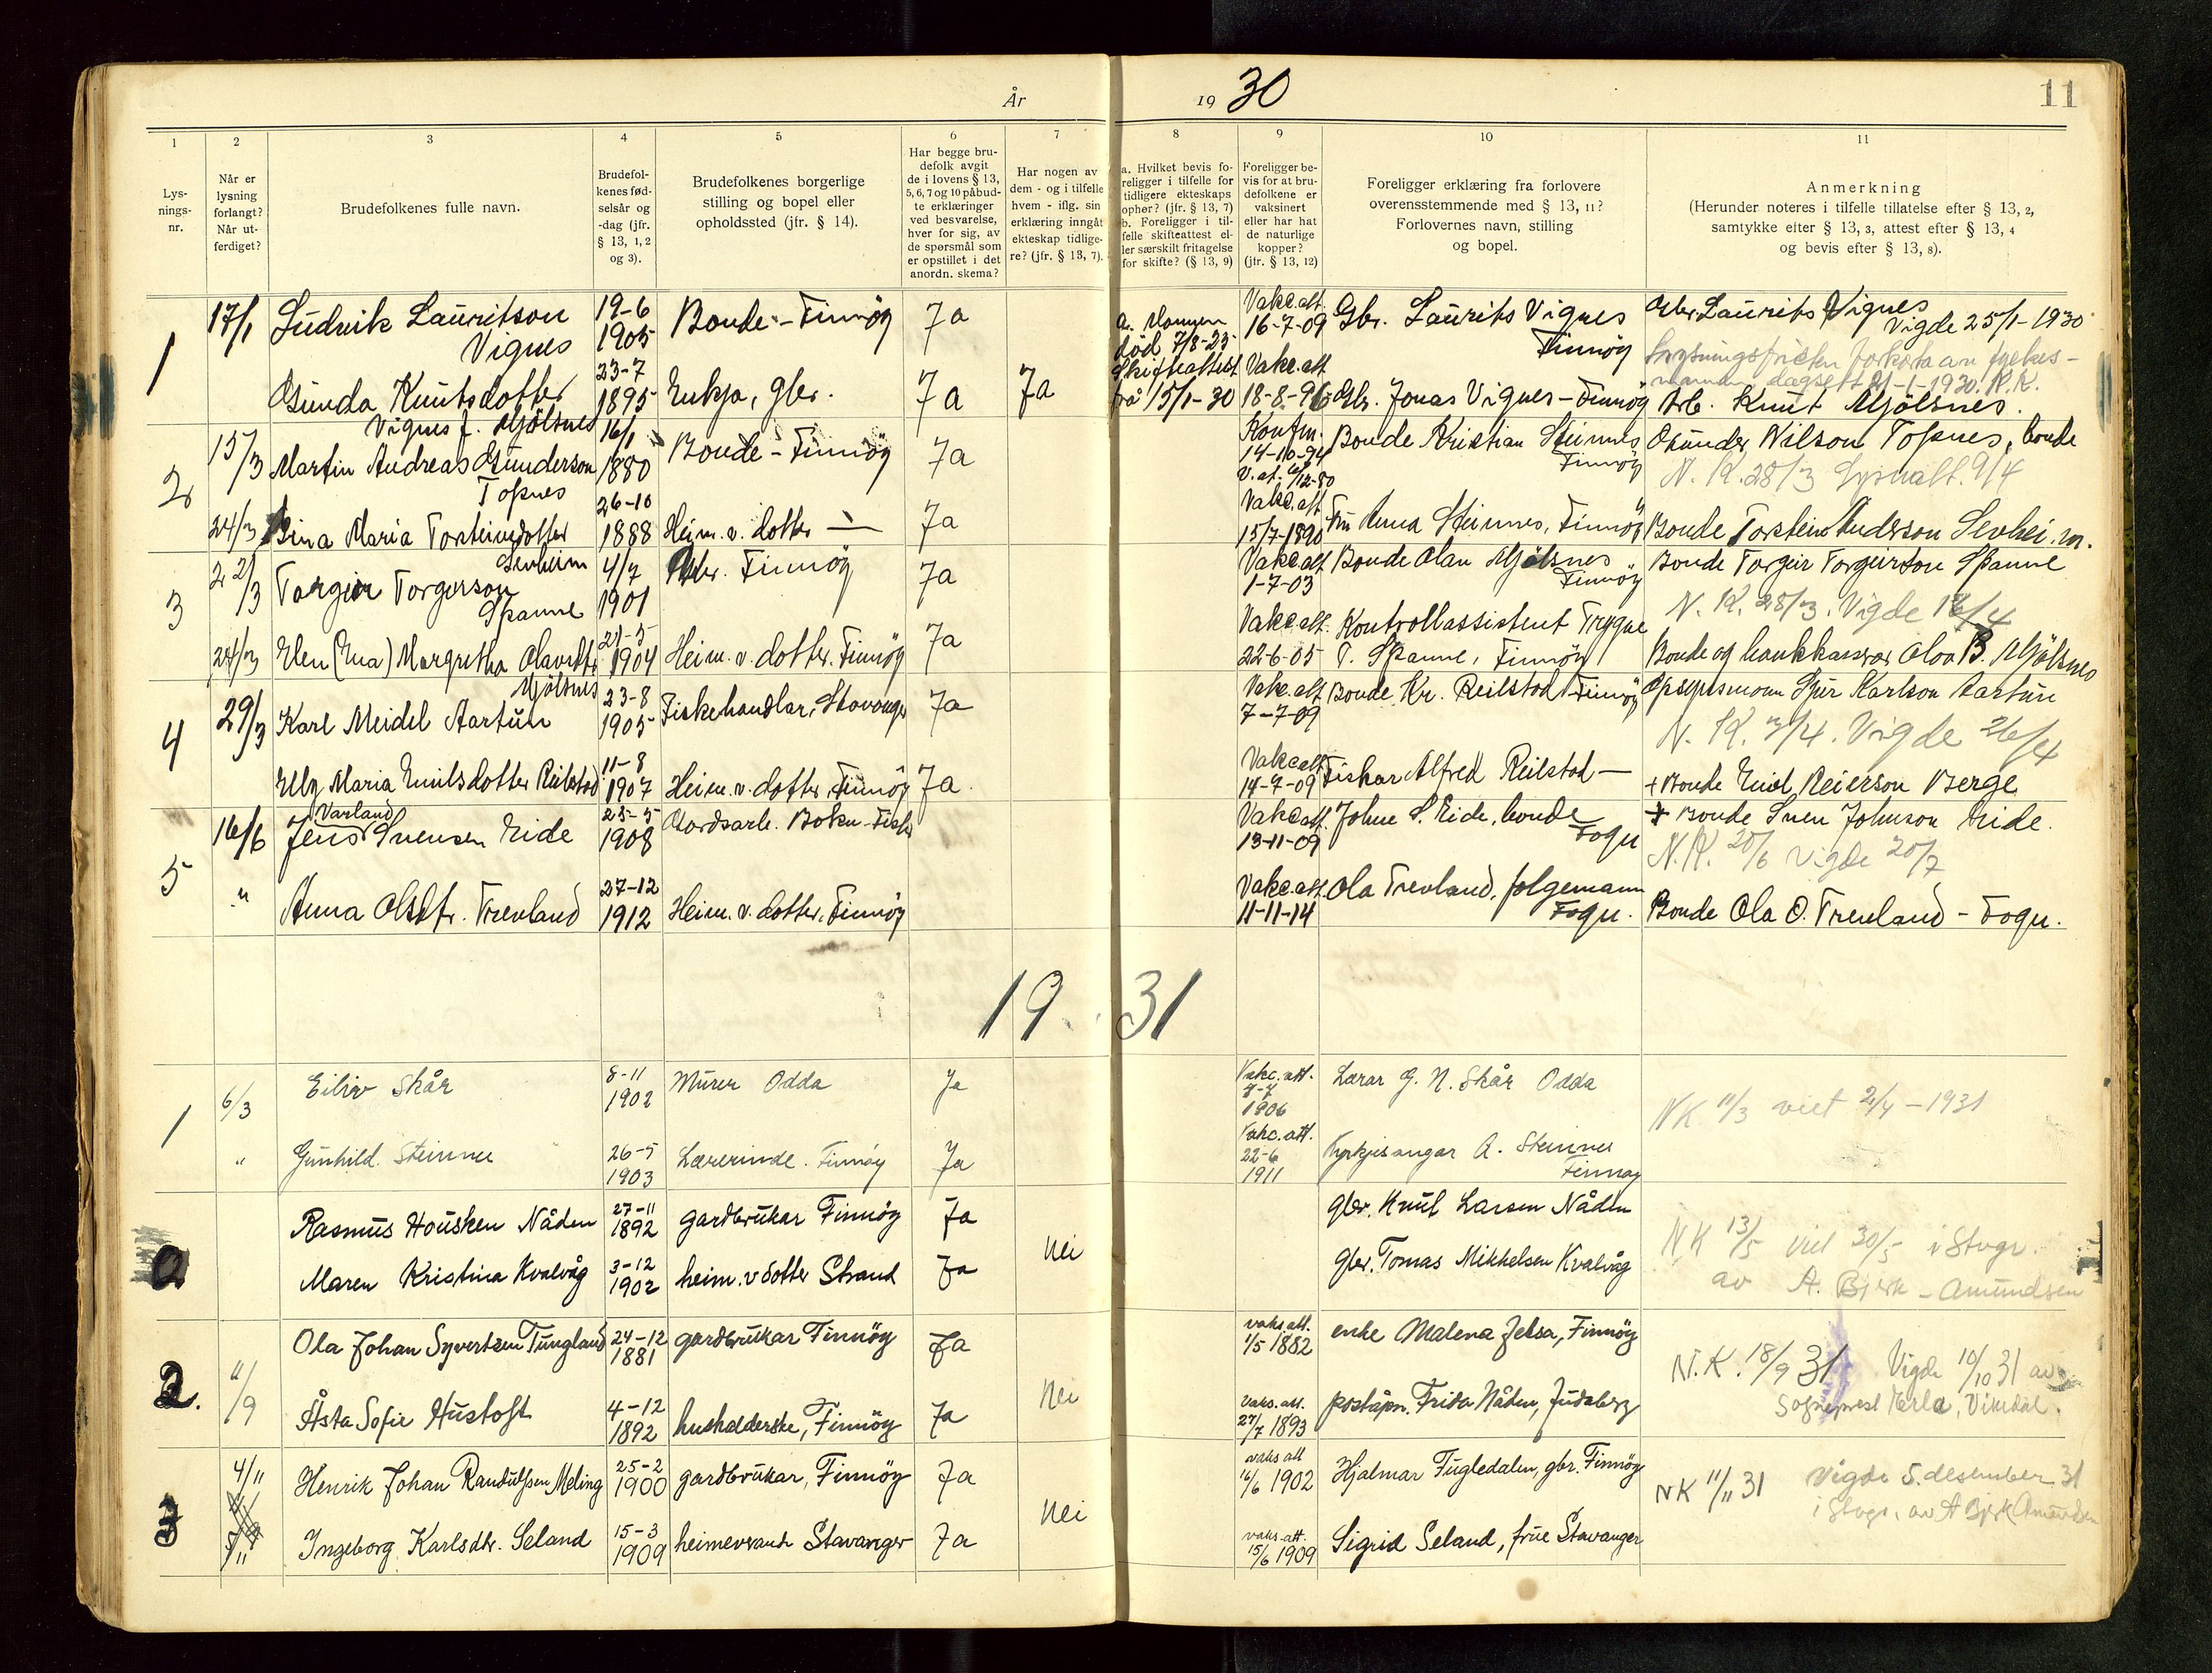 År 19 30
11
1
2
3
4
5
6
7
8
9
10
11
Lys-
nings-
nr.
Når er
lysning
forlangt?
Når ut-
ferdiget?
Brudefolkenes fulle navn.
Brudefol-
kenes fød-
selsår og
-dag (jfr.
§ 13, 1, 2
og 3).
Brudefolkenes borgerlige
stilling og bopel eller
opholdssted (jfr. § 14).
Har begge bru-
defolk avgit
de i lovens § 13,
5, 6, 7 og 10 påbud-
te erklæringer
ved besvarelse,
hver for sig, av
de spørsmål som
er opstillet i det
anordn. skema?
Har nogen av
dem - og i tilfelle
hvem - iflg. sin
erklæring inngåt
ekteskap tidlige-
re? (jfr. § 13, 7).
a. Hvilket bevis fo-
religger i tilfelle for
tidligere ekteskaps
ophør? (jfr. § 13, 7)
b. Foreligger i til-
felle skifteattest el-
ler særskilt fritagelse
for skifte? (§ 13, 9)
Foreligger be-
vis for at bru-
defolkene er
vaksinert
eller har hat
de naturlige
kopper?
(jfr. § 13, 12)
Foreligger erklæring fra forlovere
overensstemmende med § 13, 11?
Forlovernes navn, stilling
og bopel.
Anmerkning
(Herunder noteres i tilfelle tillatelse efter § 13, 2,
samtykke efter § 13, 3, attest efter § 13, 4
og bevis efter § 13, 8).
1
17/1
Ludvik Lauritson
Vignes
19-6
1905
Bonde - Finnöy
Ja
Vakc.att.
16-7-09
Gbr. Laurits Vignes
Finnöy
Gbr Laurits Vignes
Vigde 25/1-1930
Gunda Knutsdotter
Vignes f. Mjölsnes
23-7
1895
Enkja, gbr.
Ja
Ja
a. Mannen
död 7/8-23
Skifteattest
frå 15/1-30
Vakc.att
18-8-96
Gbr. Jonas Vignes - Finnöy
Lysningsfristen forkorta av fylkes-
mannen dagsett 21-1-1930. N.K.
Arb. Knut Mjölsnes.
2
15/3
Martin Andreas Gunderson
Topnes
16/1
1880
Bonde - Finnöy
Ja
Konfm.
14-10-94
Bonde Kristian Steinnes
Finnöy
Gunder Nilson Topnes, bonde
N. K. 28/3 Lysnatt. 9/4
24/3
Bina Maria Torsteinsdotter
Sevheim
26-10
1888
Heim. v. dotter —
Ja
Vakc.att
15/7-1890
Fru Anna Steinnes, Finnöy
Bonde Torstein Anderson Sevheim.
3
22/3
Torgeir Torgerson
Spanne
4/7
1901
Gbr. Finnöy
Ja
Vakc.att
1-7-03
Bonde Olav Mjölsnes
Finnöy
Bonde Torgeir Torgeirson Spanne
N. K. 28/3. Vigde 12/4
24/3
Elen (Ena) Margretha Olavsdtr
Mjölsnes
21-5
1904
Heim. v. dotter. Finnöy
Ja
Vakc.att.
22-6-05
Kontrollassistent Trygve
T. Spanne, Finnöy
Bonde og bankkasserar Olav B. Mjölsnes
4
29/3
Karl Meidel Aartun
23-8
1905
Fiskehandlar, Stavanger
Ja
Vakc.att
7-7-09
Bonde Kr. Reilstad Finnöy
Opsynsmann Sjur Karlson Aartun
N. K. 3/4. Vigde 26/4
Elly Maria Emilsdotter Reilstad
11-8
1907
Heim. v. dotter, Finnöy
Ja.
Vakc.att
14-7-09
Fiskar Alfred Reilstad —
+ Bonde Emil Reierson Berge
5
16/6
Varland
Jens Svensen Eide
25-5
1908
Gardsarb. Bokn - Fisk
Vakc.att.
13-11-09
Johne S. Eide, bonde
Fogn
+ Bonde Sven Johnson Eide.
N.K. 20/6 Vigde 20/7
"
Anna Olsdtr. Trevland
27-12
1912
Heim. v. dotter, Finnöy
Vakc.att.
11-11-14
Ola Trevland, folgemann
Fogn.
Bonde Ola O. Trevland - Fogn.
19 31
1
6/3
Eiliv Skår
8-11
1902
Murer Odda
Ja
Vakc. att.
1906
Lærar G. N. Skår Odda
NK 11/3 viet 2/4 - 1931
"
Gunhild Steinnes
26-5
1903
Lærerinde. Finnöy
Ja
Vakc. att.
22-6
1911
Kyrkjesongar A. Steinnes
Finnøy
a
Rasmus Housken Nåden
27-11
1892
gardbrukar Finnöy
Ja
nei
gbr. Knut Larsen Nåden
NK 13/5 viet 30/5 i Stvgr.
av A. Bjerk - Amundsen
Maren Kristina Kvalvåg
3-12
1902
heim. v dotter Strand
Ja
gbr. Tomas Mikkelsen Kvalvåg
2.
11/9
Ola Johan Syvertsen Tungland
24-12
1881
gardbrukar Finnöy
Ja
nei
vaks. att.
1/5 1882
enke Malena Jelsa, Finnöy
N.K. 18/9 31 Vigde 10/10 31 av
Sogneprest Erla, Vikedal.
Åsta Sofie Hustoft
4-12
1892
husholderske, Finnöy
Ja
vaks. att.
27/7 1893
poståpn. Frida Nåden, Judaberg
3
4/11
Henrik Johan Randulfsen Meling
25-2
1900
gardbrukar, Finnöy
Ja
nei
vaks att
16/6 1902
Hjalmar Fugledalen, gbr. Finnöy
NK 11/11 31 Vigde 5. desember 31
i Stvgr. av A Bjerk Amundsen
7/11
Ingeborg Karlsdtr. Seland
15-3
1909
heimeverande Stavanger
Ja
vaks. att.
15/6 1909
Sigrid Seland, frue Stavanger